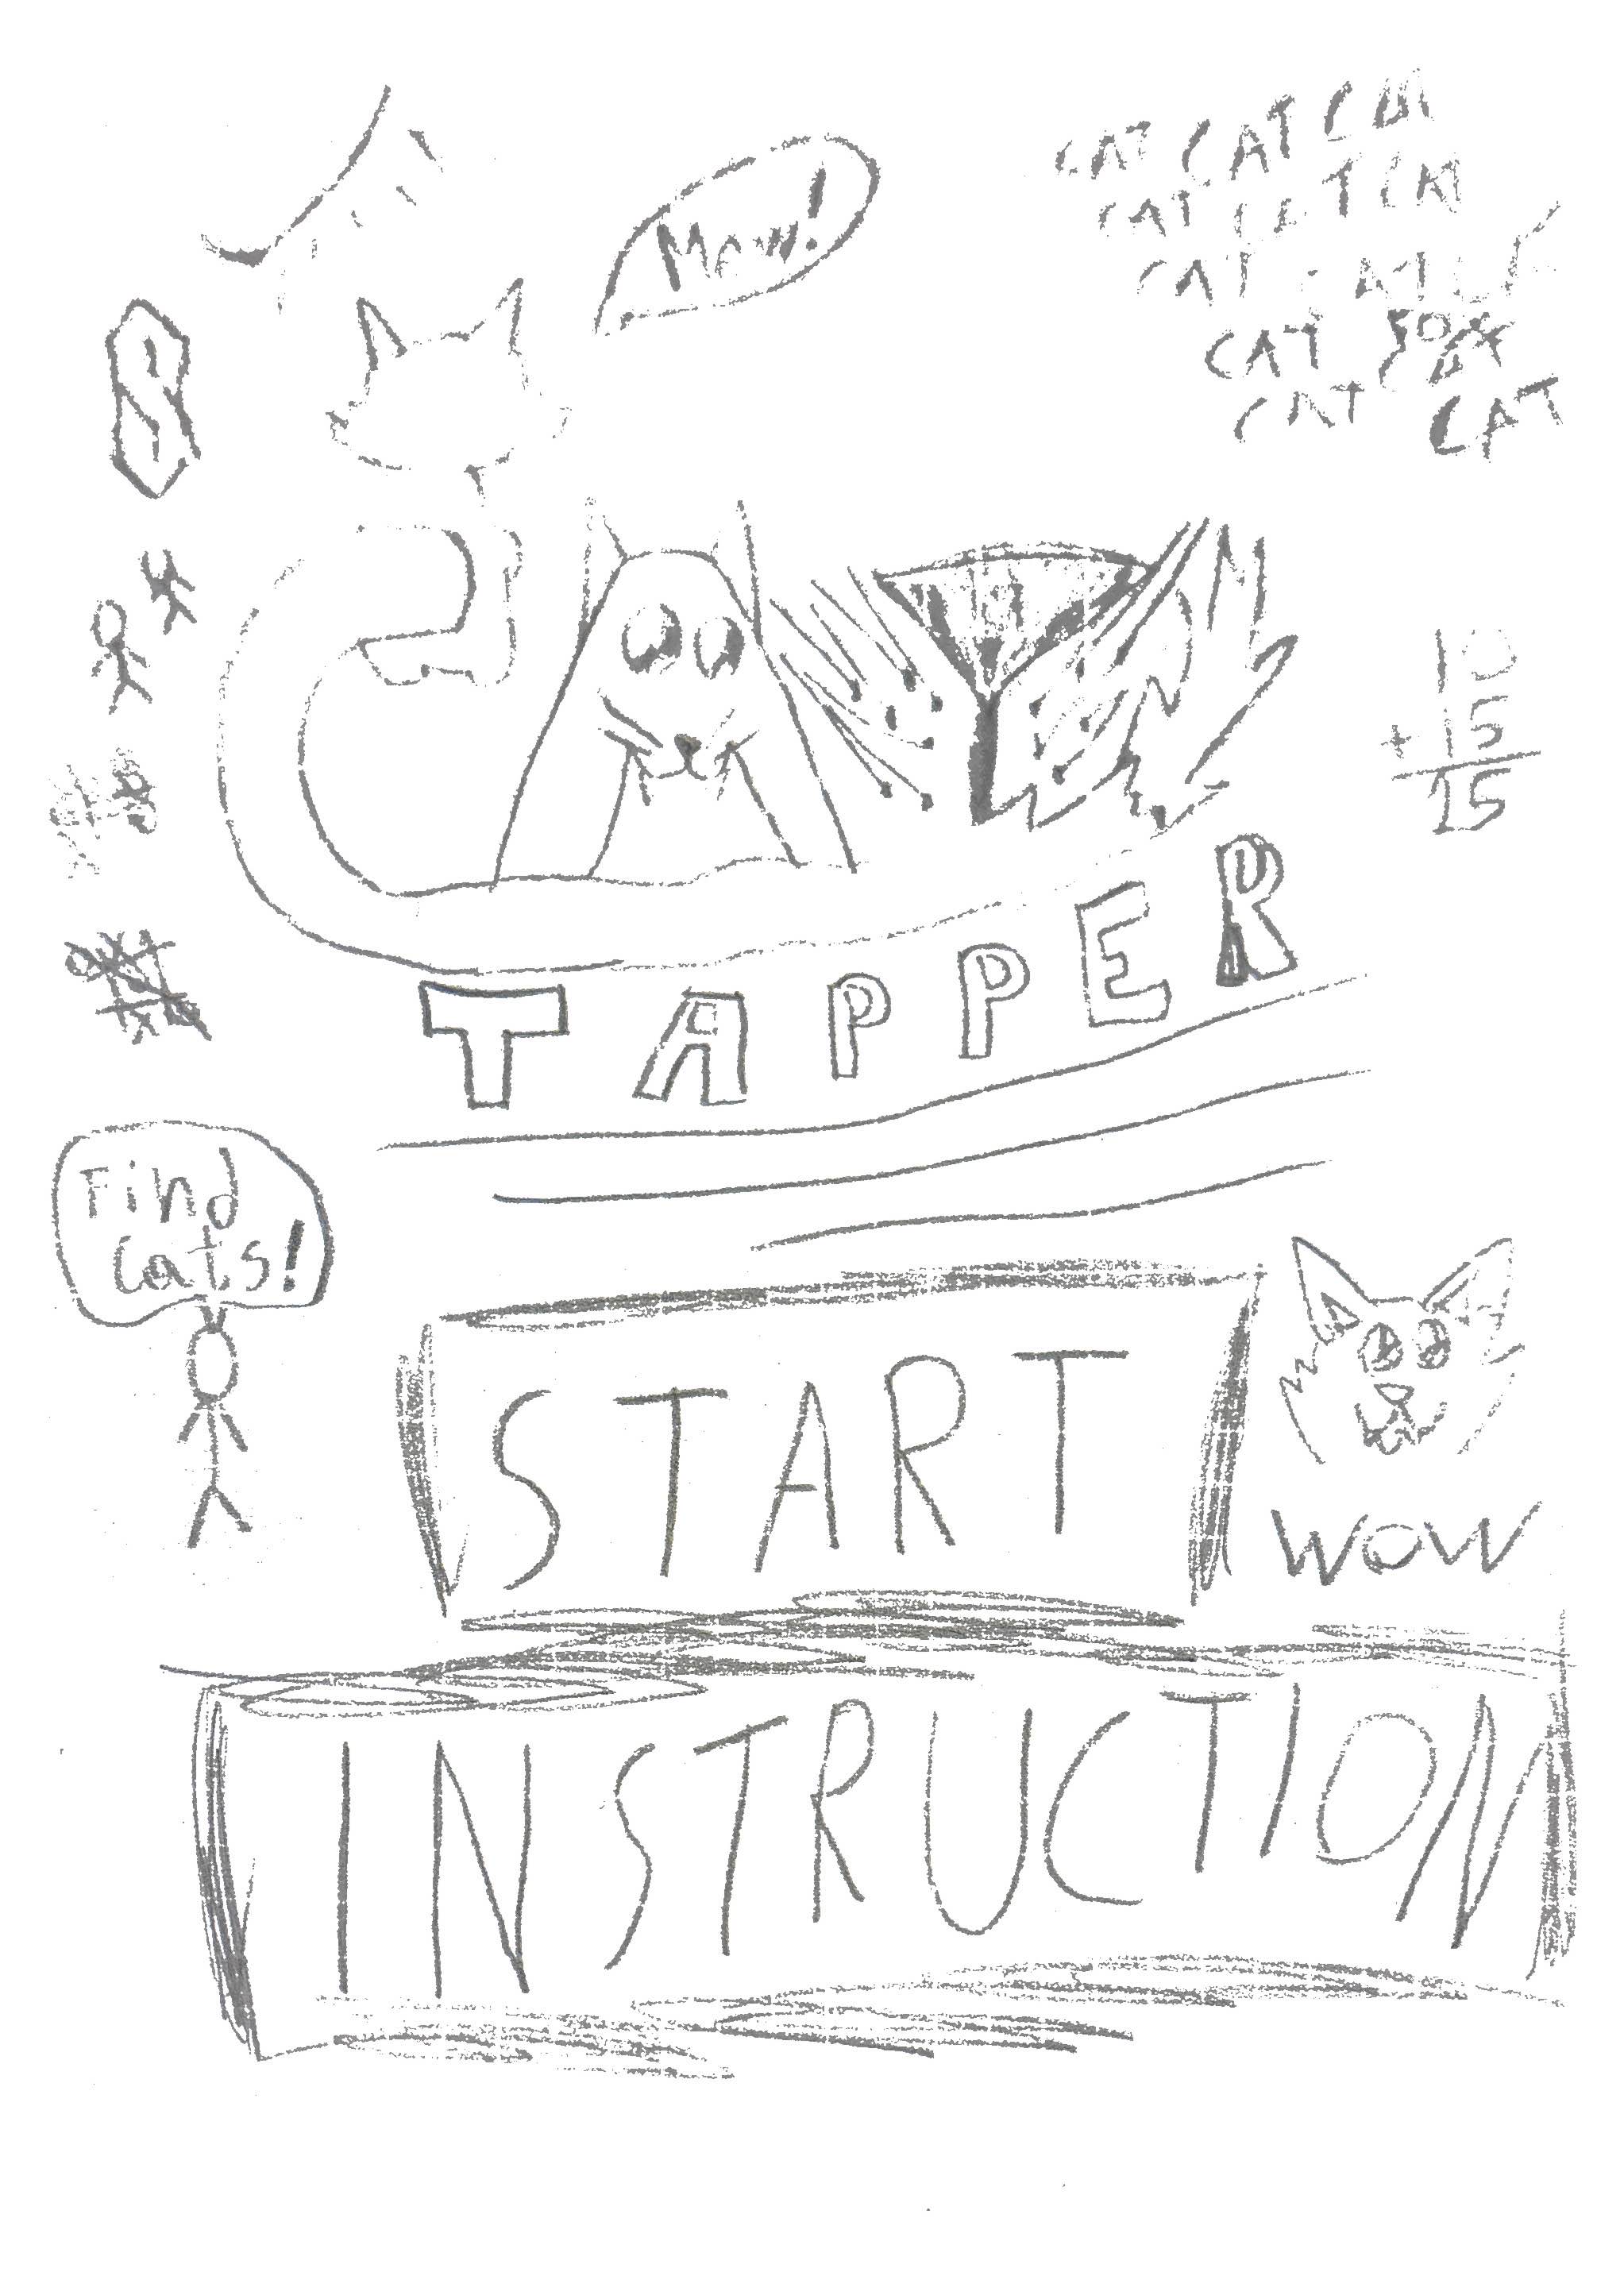 Mew!
CAT CAT CAT
CAT CAT CAT
CAT CAT
CAT
CAT CAT
CAT
S
CAT
10
+15
25
TAPPER
Find
Cats!
START
WOW
INSTRUCTION